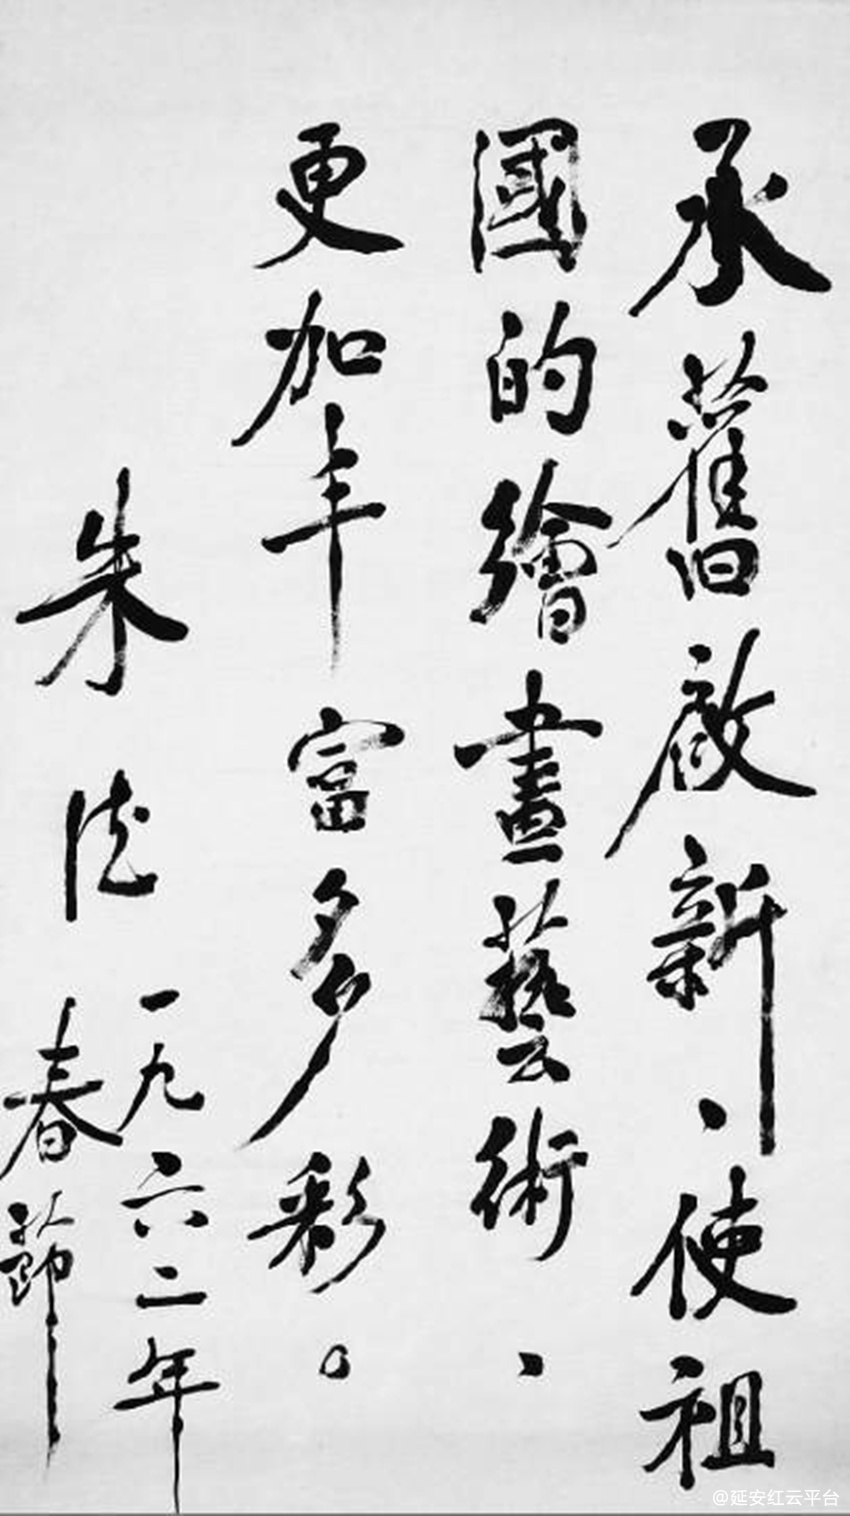 承舊啟新、使祖
國的繪畫藝術、
更加丰富多彩。
朱德
一九六二年
春節
@延安红云平台